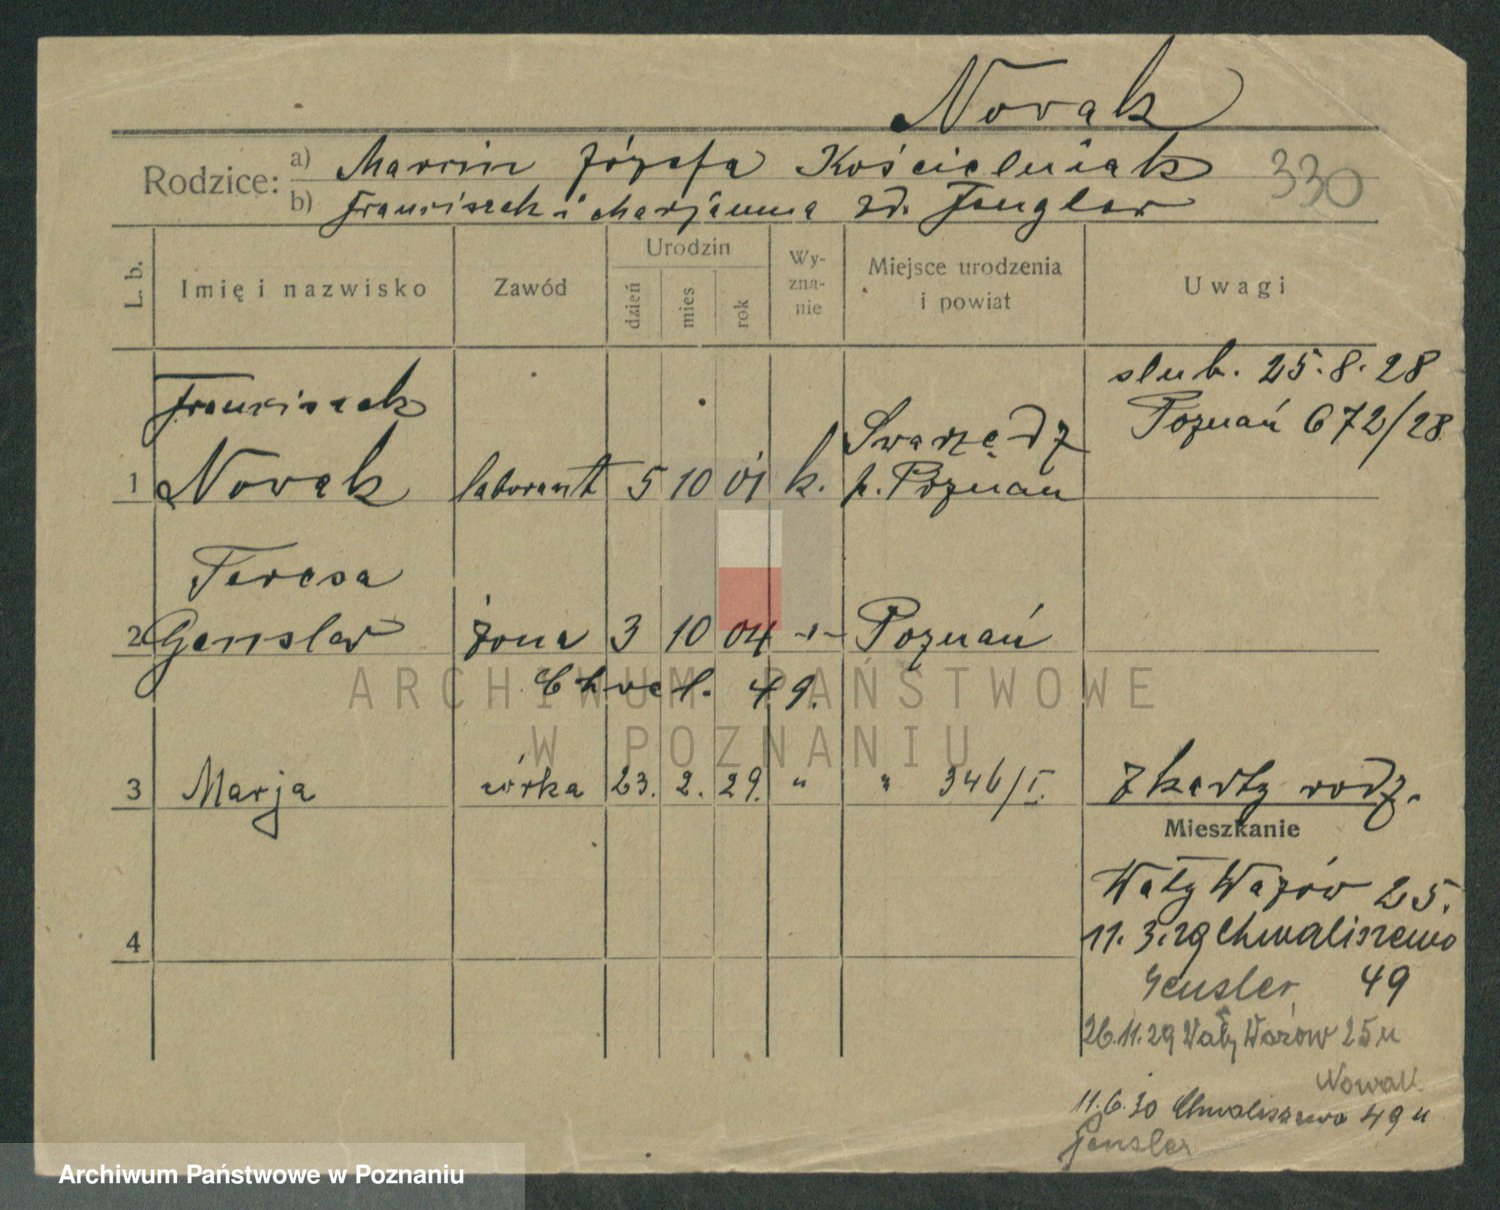 Novak
Rodzice: a) Marcin Józefa Kościelniak 330
b) Franciszek i Marjanna zd. Fengler
L. b. Imię i nazwisko Zawód Urodzin dzień mies rok Wyznanie Miejsce urodzenia i powiat Uwagi
Franciszek
slub. 25.8.28
Swarzędz Poznań 672/28
1 Novak laborant 5 10 01 k. p. Poznań
Teresa
2 Gensler żona 3 10 04 -"- Poznań
Chval. 49.
3 Marja córka 23. 2. 29. " " 346/I. z karty rodz.
Mieszkanie
Wały Wazów 25.
11. 3. 29 Chwaliszewo
4
Gensler 49
26.11.29 Wały Wazów 25 u
Nowak
11.6.30 Chwaliszewo 49 u
Gensler
ARCHIWUM PAŃSTWOWE
W POZNANIU
Archiwum Państwowe w Poznaniu